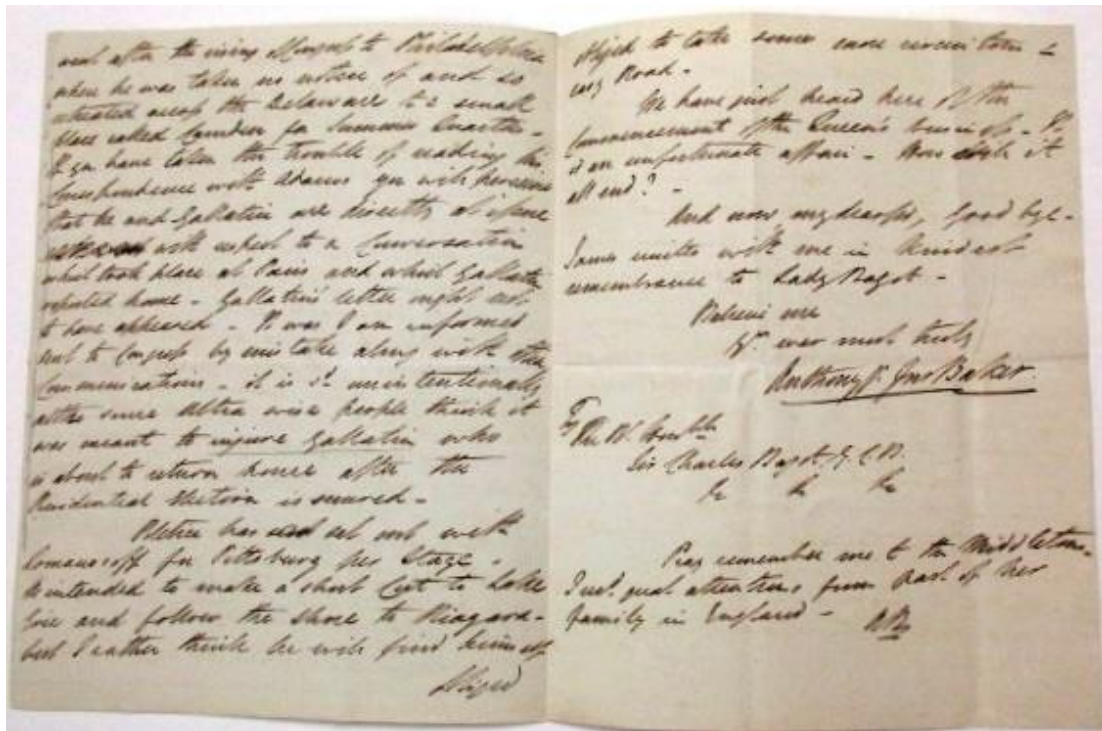 and after the rising to Philadelphia
where he was taken no notice of and so
retreated across the Delaware to a small
place called Camden for Summer Quarters -
If you have taken the trouble of reading his
Correspondence with Adams you will perceive
that he and Gallatin are directly at issue
with respect to a Conversation
which took place at Paris and which Gallatin
repeated home - Gallatin's letter ought not
to have appeared - It was I am informed
sent to Congress by mistake along with other
Communications - it is sd. unintentionally
altho some ultra wise people think it
was meant to injure Gallatin who
is about to return home after the
Presidential Election is secured -
has set out with
for Pittsburg per Stage -
He intended to make a short Cut to Lake
Erie and follow the shore to Niagara -
but I rather think he will find himself
obliged
obliged to take some more
easy Road -
We have just heard here of the
Commencement of the Queen's business - It
is an unfortunate affair - How will it
all end? -
And now my dear Sir, Good bye -
James unites with me in kindest
remembrance to Lady Bagot -
Believe me
Yr. ever most truly
Anthony St. Jno Baker.
To
The Rt. Honble
Sir Charles Bagot G.C.B.
&c &c &c
Pray remember me to the Middletons -
I met great attentions from part of her
family in England -
AB